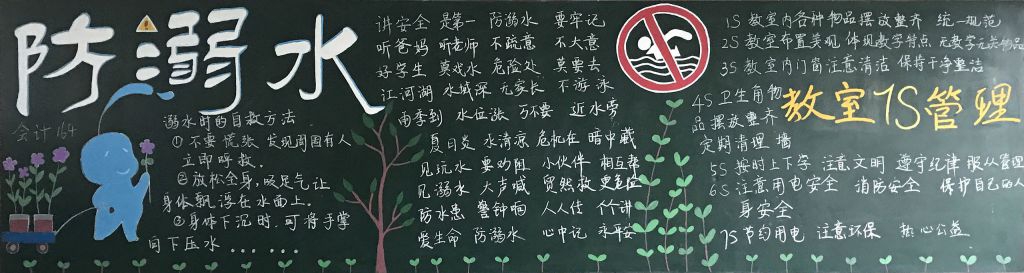 防溺水
会计164
溺水时的自救方法
①不要慌张 发现周围有人
立即呼救。
②放松全身,吸足气让
身体飘浮在水面上。
③身体下沉时,可将手掌
向下压水......
讲安全 是第一 防溺水 要牢记
听爸妈 听老师 不疏意 不大意
好学生 莫戏水 危险处 莫要去
江河湖 水域深 无家长 不游泳
雨季到 水位涨 万不要 近水旁
夏日炎 水清凉 危机在 暗中藏
见玩水 要劝阻 小伙伴 相互帮
见溺水 大声喊 贸然救 更危险
防水患 警钟响 人人传 个个讲
爱生命 防溺水 心中记 永平安
教室7S管理
1S 教室内各种物品摆放整齐 统一规范
2S 教室布置美观 体现教学特点 无教学无关物品
3S 教室内门窗注意清洁 保持干净整洁
4S 卫生角物
品摆放整齐
定期清理 墙
5S 按时上下学 注意文明 遵守纪律 服从管理
6S 注意用电安全 消防安全 保护自己的人
身安全
7S 节约用电 注意环保 热心公益